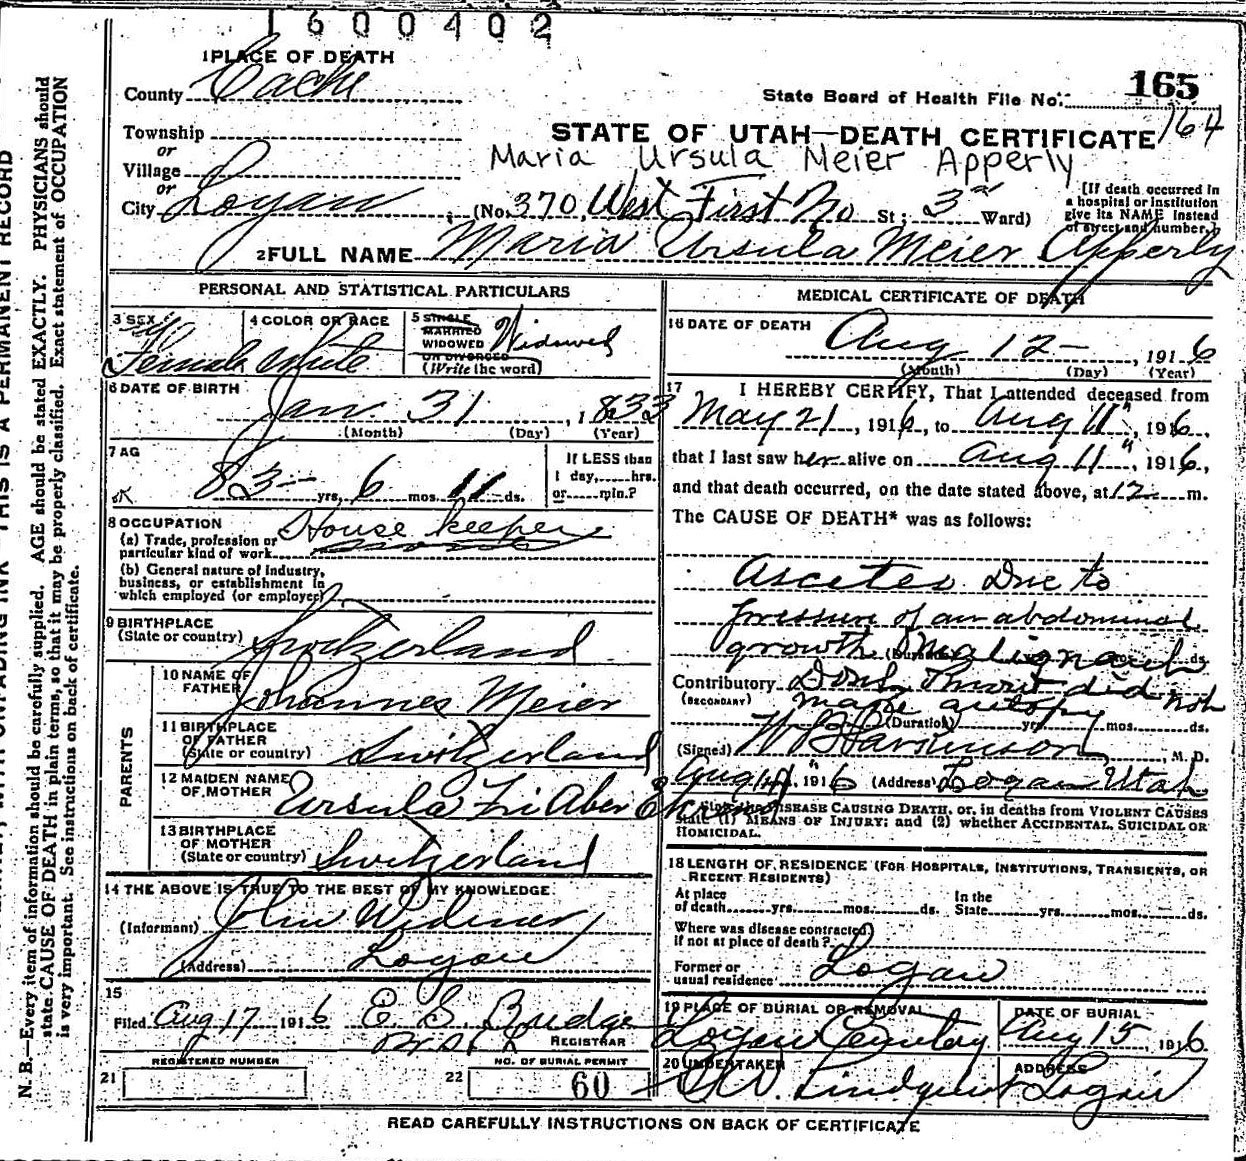 1600402
1 PLACE OF DEATH
County Cache
State Board of Health File No. 165
164
Township
or
Village
or
City Logan
STATE OF UTAH—DEATH CERTIFICATE
Maria Ursula Meier Apperly
(No. 370 West First No St; 3rd Ward)
(If death occurred in a hospital or institution give its NAME instead of street and number.)
2 FULL NAME Maria Ursula Meier Apperly
PERSONAL AND STATISTICAL PARTICULARS
3 SEX Female
4 COLOR OR RACE White
5 SINGLE MARRIED WIDOWED OR DIVORCED (Write the word) Widowed
6 DATE OF BIRTH
Jan 31, 1833
(Month) (Day) (Year)
7 AG
OK
83 yrs. 6 mos. 11 ds.
If LESS than 1 day, hrs. or min.?
8 OCCUPATION
(a) Trade, profession or particular kind of work House keeper
(b) General nature of industry, business, or establishment in which employed (or employer)
9 BIRTHPLACE
(State or country) Switzerland
PARENTS
10 NAME OF FATHER Johannes Meier
11 BIRTHPLACE OF FATHER (State or country) Switzerland
12 MAIDEN NAME OF MOTHER Ursula
13 BIRTHPLACE OF MOTHER (State or country) Switzerland
14 THE ABOVE IS TRUE TO THE BEST OF MY KNOWLEDGE
(Informant) John Widmer
(Address) Logan
15
Filed Aug 17 1916 E S Budge
REGISTRAR
REGISTERED NUMBER
21
NO. OF BURIAL PERMIT
22 60
MEDICAL CERTIFICATE OF DEATH
16 DATE OF DEATH
Aug 12, 1916
(Month) (Day) (Year)
17
I HEREBY CERTIFY, That I attended deceased from
May 21, 1916, to Aug 11", 1916,
that I last saw her alive on Aug 11", 1916,
and that death occurred, on the date stated above, at 12 m.
The CAUSE OF DEATH* was as follows:
Ascetes Due to
pressure of an abdominal
growth Malignant
(Duration) ds.
Contributory did not
(SECONDARY) make autopsy
(Duration) yrs. mos. ds.
(Signed) W B Parkinson, M. D.
Aug 14", 1916 (Address) Logan Utah
State the DISEASE CAUSING DEATH, or, in deaths from VIOLENT CAUSES state (1) MEANS OF INJURY; and (2) whether ACCIDENTAL, SUICIDAL OR HOMICIDAL.
18 LENGTH OF RESIDENCE (FOR HOSPITALS, INSTITUTIONS, TRANSIENTS, OR RECENT RESIDENTS)
At place of death yrs. mos. ds. In the State yrs. mos. ds.
Where was disease contracted, if not at place of death?
Former or usual residence Logan
19 PLACE OF BURIAL OR REMOVAL
Logan Cemetay
DATE OF BURIAL
Aug 15, 1916.
20 UNDERTAKER
W. Lindquist
ADDRESS
Logan
READ CAREFULLY INSTRUCTIONS ON BACK OF CERTIFICATE
THIS IS A PERMANENT RECORD
N. B.—Every item of information should be carefully supplied. AGE should be stated EXACTLY. PHYSICIANS should
state CAUSE OF DEATH in plain terms, so that it may be properly classified. Exact statement of OCCUPATION
is very important. See instructions on back of certificate.